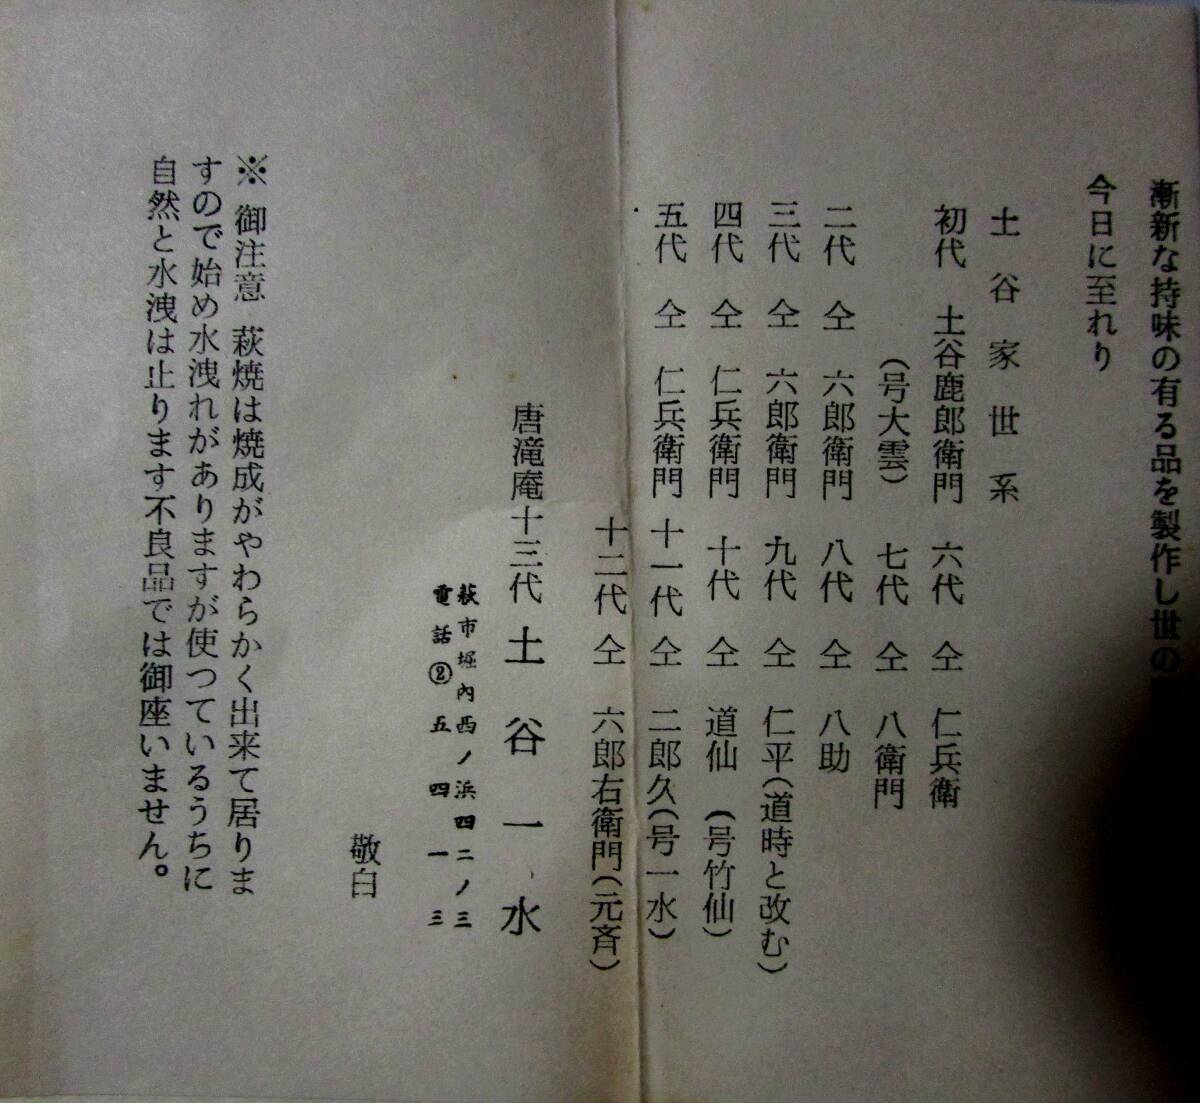 漸新な持味の有る品を製作し世の
今日に至れり
土谷家世系
初代 土谷鹿郎衛門 六代 仝 仁兵衛
(号大雲) 七代 仝 八衛門
二代 仝 六郎衛門 八代 仝 八助
三代 仝 六郎衛門 九代 仝 仁平(道時と改む)
四代 仝 仁兵衛門 十代 仝 道仙 (号竹仙)
五代 仝 仁兵衛門 十一代 仝 二郎久(号一水)
十二代 仝 六郎右衛門(元斉)
唐滝庵十三代 土谷一水
萩市堀内西ノ浜四二ノ三
電話②五四一三
敬白
※ 御注意 萩焼は焼成がやわらかく出来て居りま
すので始め水洩れがありますが使つているうちに
自然と水洩は止ります不良品では御座いません。